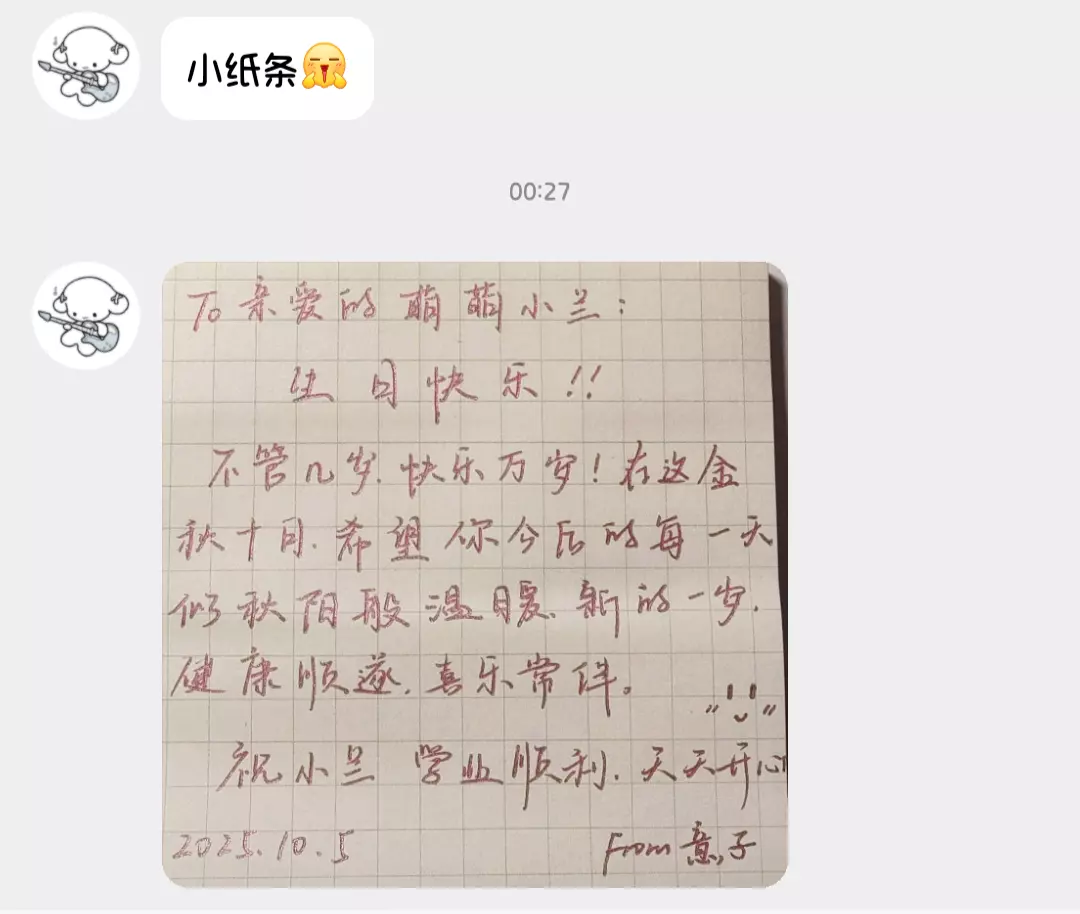 小纸条
00:27
To 亲爱的萌萌小兰：
生日快乐！！
不管几岁，快乐万岁！在这金
秋十月，希望你今后的每一天
似秋阳般温暖，新的一岁，
健康顺遂，喜乐常伴。
祝小兰 学业顺利，天天开心
2025.10.5 From 意子